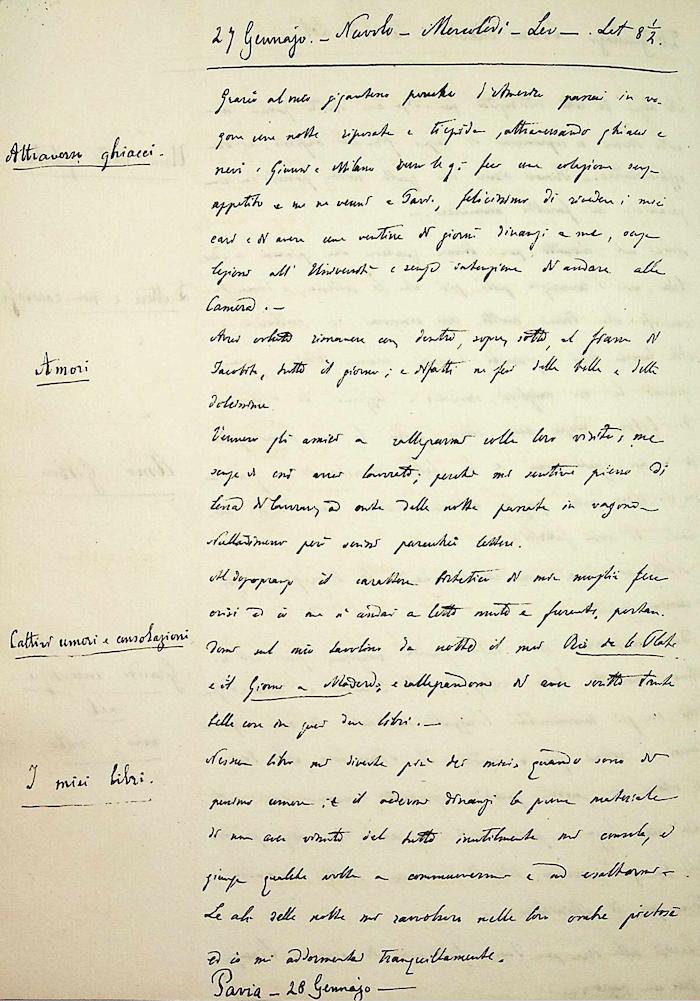 27 Gennajo. - Nuvolo - Mercoledì - Lev - . Let 8 1/2.
Grazie al mio gigantesco d'America passai in va-
Attraverso ghiacci.
gone una notte riposata e tiepida, attraversando ghiacci e
nevi. Giunsi a Milano verso le 9: feci una colazione senza
appetito e me ne venni a Pavia, felicissimo di rivedere i miei
cari e di avere una ventina di giorni dinanzi a me, senza
lezioni all' Università e senza intenzione di andare alla
Camera. -
Amori
Avrei voluto rimanere con, dentro, sopra, sotto, al fianco di
Jacobita, tutto il giorno; e difatti ne feci delle belle e delle
dolcissime.
Vennero gli amici a rallegrarmi colle loro visite, ma
senza di essi avrei lavorato; perchè mi sentivo pieno di
di lavorare, ad onta della notte passata in vagone.
Nulladimeno però scrissi parecchie lettere.
Al dopopranzo il carattere di mia moglie fece
crisi ed io me n' andai a letto muto e furente, portan-
Cattivi umori e consolazioni
domi sul mio tavolino da notte il mio Rio de la Plata
e il Giorno a Madera, e rallegrandomi di aver scritto tante
belle cose in quei due libri. -
I miei libri.
Nessun libro mi diverte più dei miei, quando sono di
pessimo umore; e il vedermi dinanzi la prova materiale
di non aver vissuto del tutto inutilmente mi consola, e
giunge qualche volta a commuovermi e ad esaltarmi -
Le ali della notte mi ravvolsero nelle loro ombre pietose
ed io mi addormentai tranquillamente.
Pavia - 28 Gennajo -